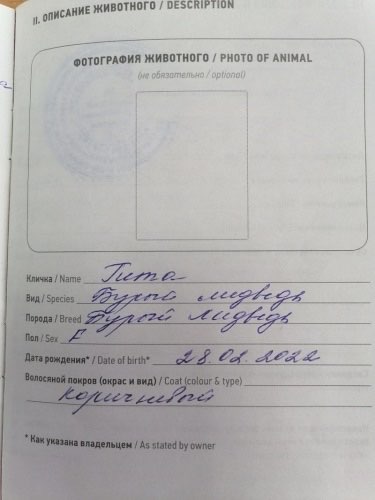 II. ОПИСАНИЕ ЖИВОТНОГО / DESCRIPTION
ФОТОГРАФИЯ ЖИВОТНОГО / PHOTO OF ANIMAL
(не обязательно / optional)
Кличка / Name Тита
Вид / Species Бурый медведь
Порода / Breed Бурый медведь
Пол / Sex F
Дата рождения* / Date of birth* 28.02.2022
Волосяной покров (окрас и вид) / Coat (colour & type)
коричневый
* Как указана владельцем / As stated by owner